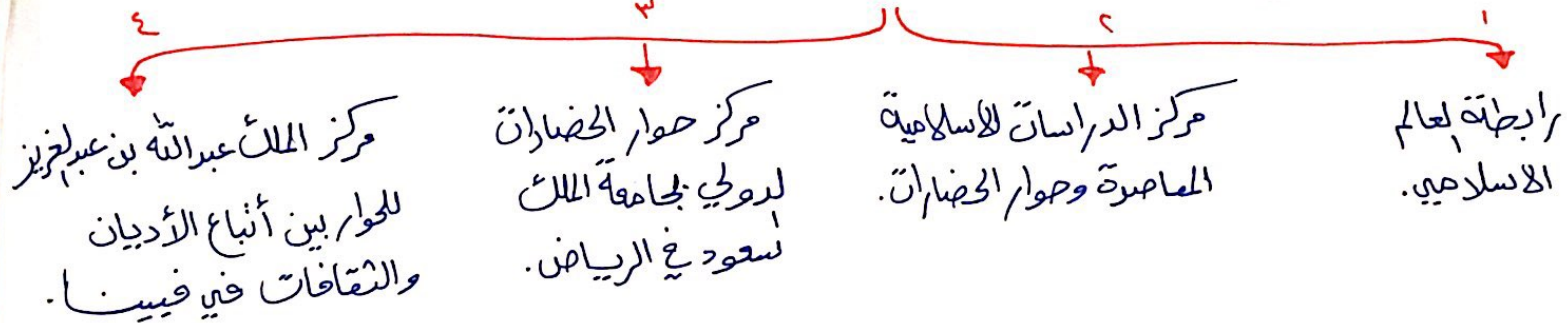 ١
رابطة العالم
الاسلامي.
٢
مركز الدراسات الاسلامية
المعاصرة وحوار الحضارات.
٣
مركز حوار الحضارات
لدولي بجامعة الملك
سعود في الرياض.
٤
مركز الملك عبدالله بن عبدالعزيز
للحوار بين أتباع الأديان
والثقافات في فيينا.